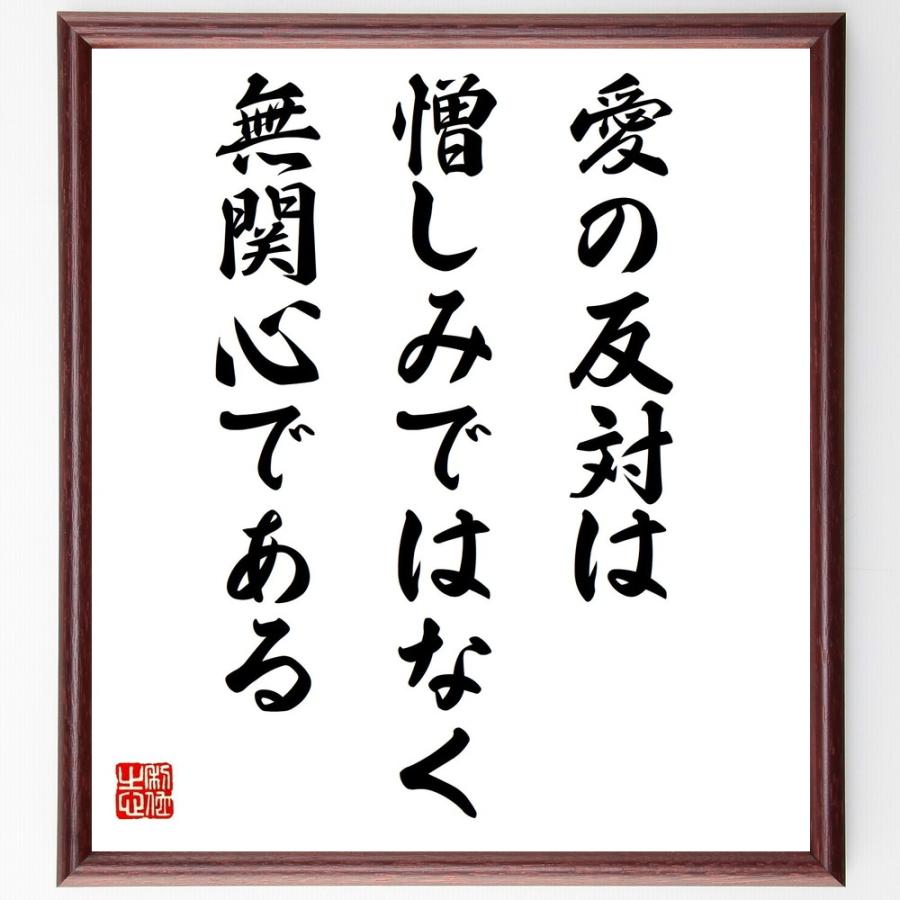 愛の反対は
憎しみではなく
無関心である